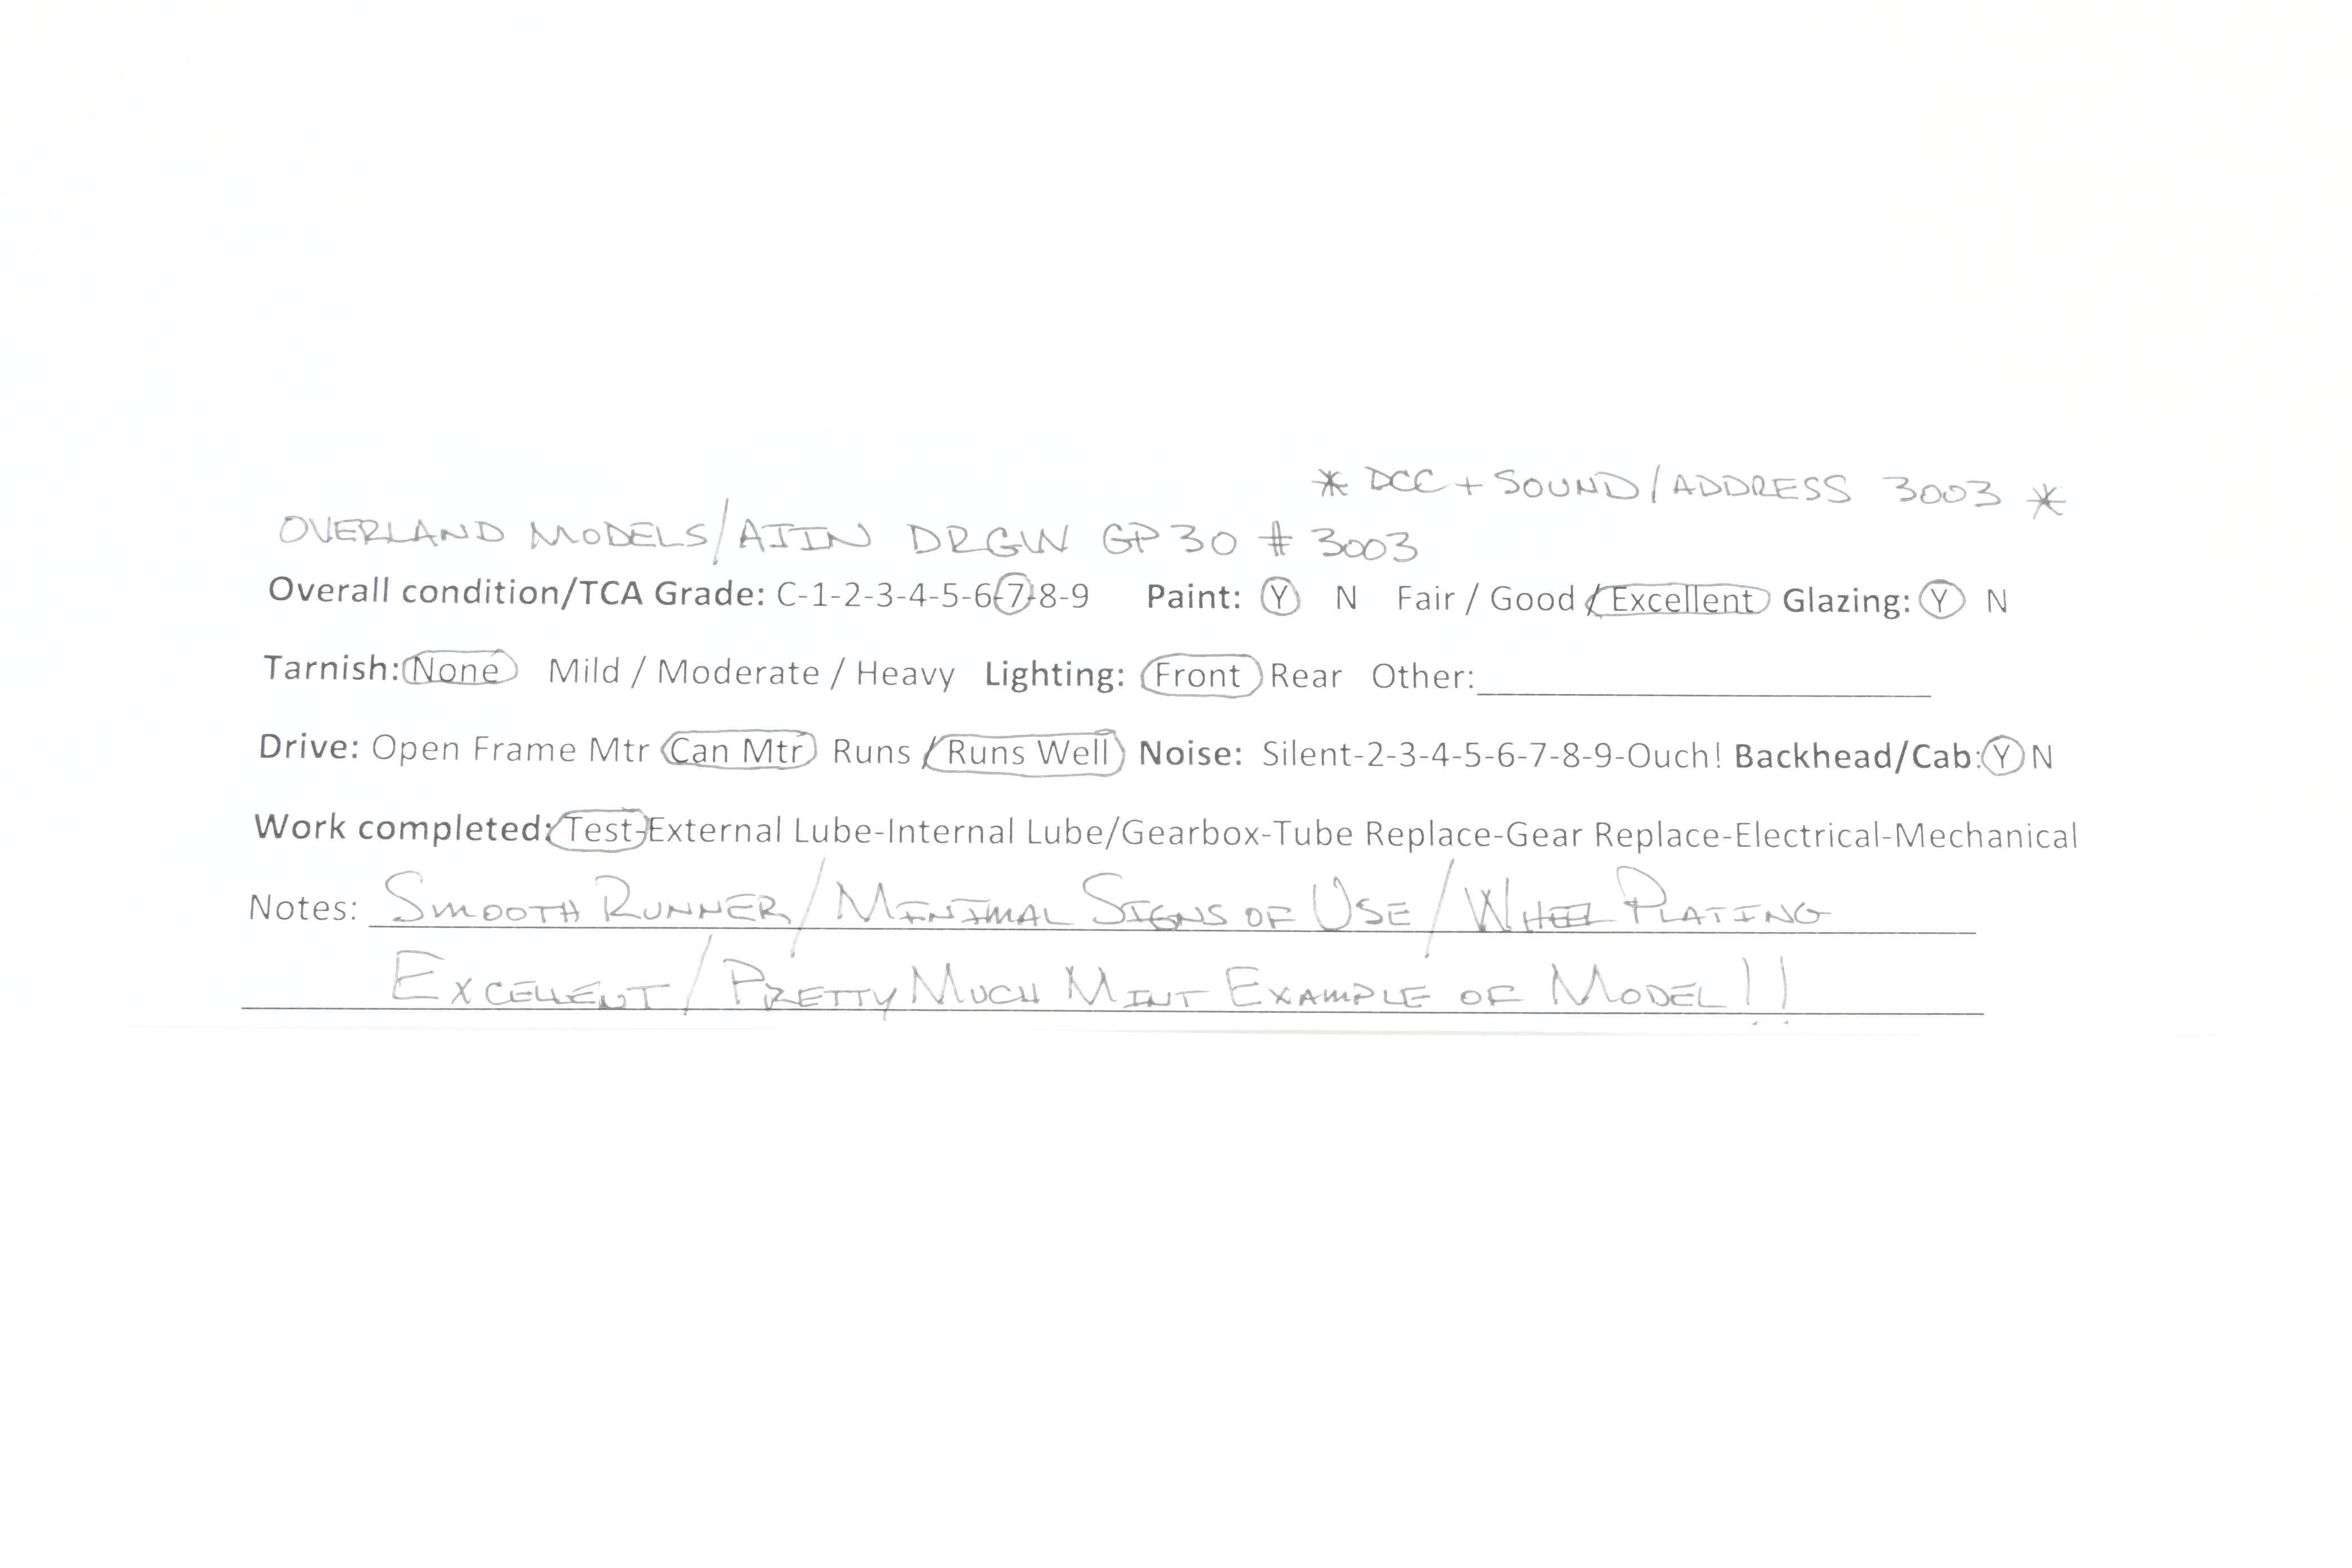 * DCC + SOUND/ADDRESS 3003 *
OVERLAND MODELS/AJIN DRGW GP30 # 3003
Overall condition/TCA Grade: C-1-2-3-4-5-6-7-8-9 Paint: Y N Fair / Good / Excellent Glazing: Y N
Tarnish: None Mild / Moderate / Heavy Lighting: Front Rear Other:
Drive: Open Frame Mtr Can Mtr Runs / Runs Well Noise: Silent-2-3-4-5-6-7-8-9-Ouch! Backhead/Cab: Y N
Work completed: Test-External Lube-Internal Lube/Gearbox-Tube Replace-Gear Replace-Electrical-Mechanical
Notes: SMOOTH RUNNER/MINIMAL SIGNS OF USE/WHEEL PLATING
EXCELLENT/PRETTY MUCH MINT EXAMPLE OF MODEL!!